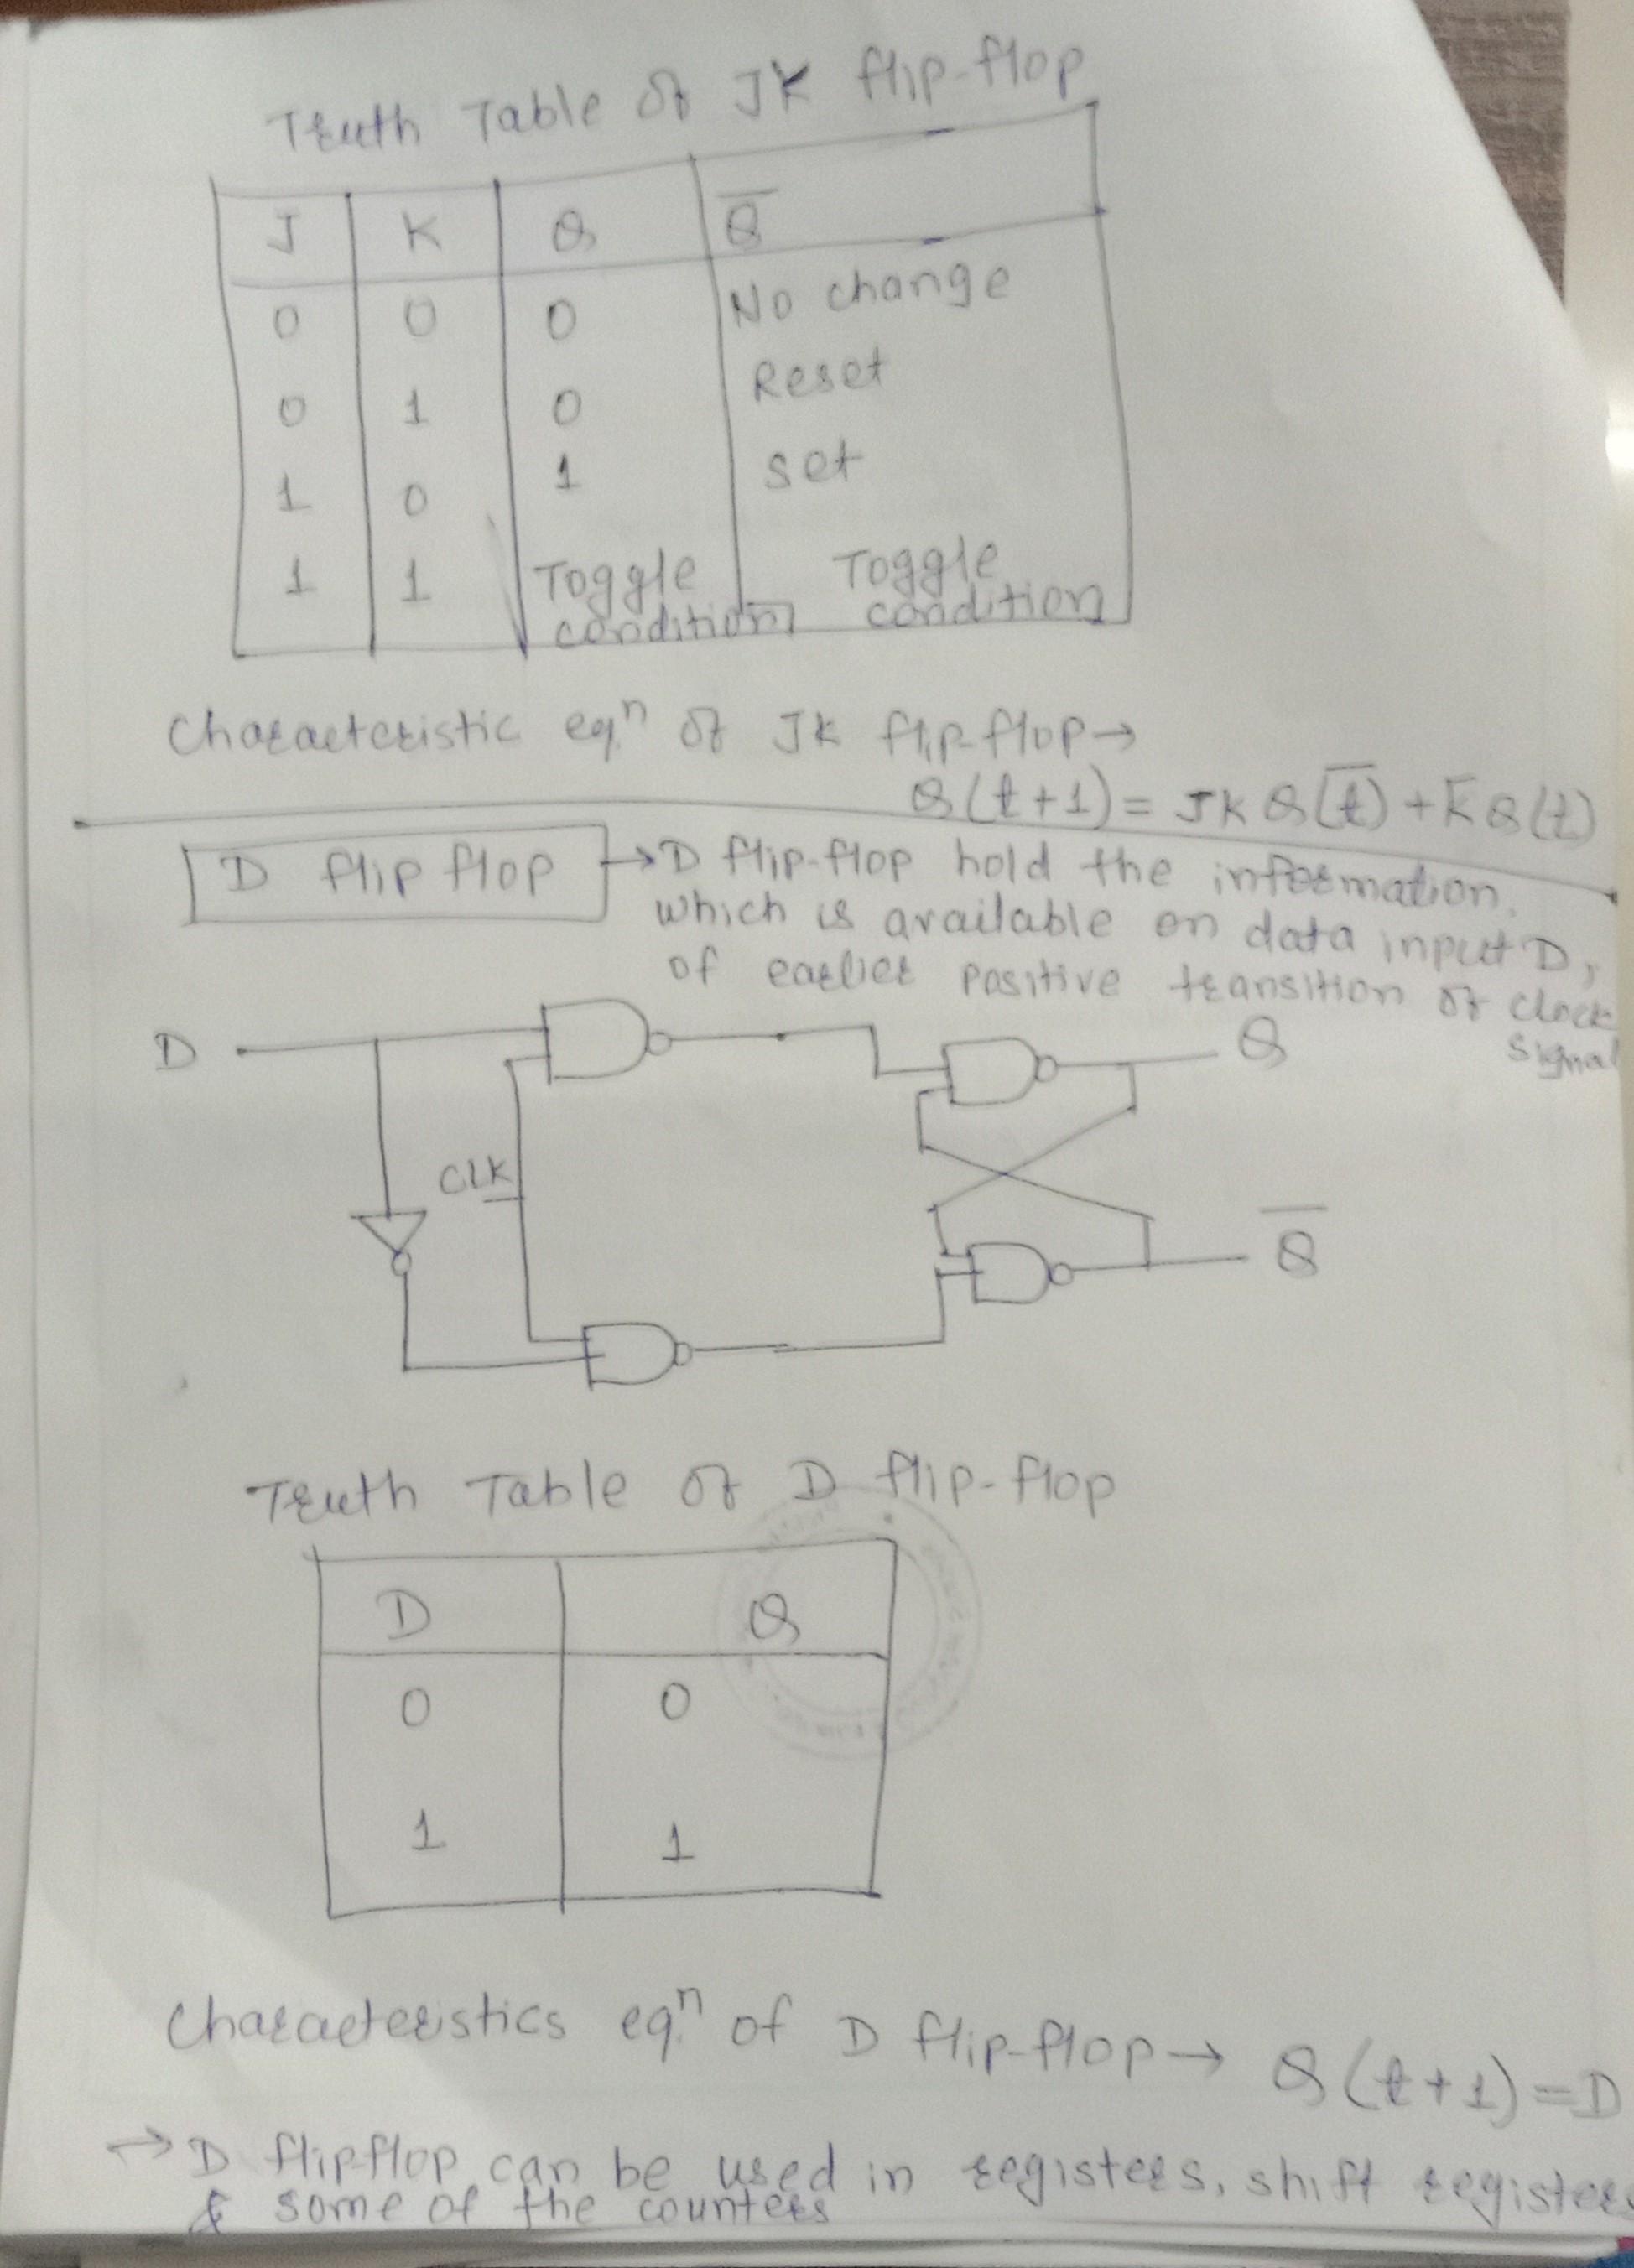 Truth Table of JK flip-flop
J K Q Q̅
0 0 0 No change
0 1 0 Reset
1 0 1 Set
1 1 Toggle condition Toggle condition
Characteristic eqⁿ of JK flip-flop→
Q(t+1) = JK Q(t̅) + K̅Q(t)
D flip flop → D flip-flop hold the information,
which is available on data input D,
of earlier positive transition of clock
signal
D
Q
CLK
Q̅
Truth Table of D flip-flop
D Q
0 0
1 1
Characteristics eq.ⁿ of D flip-flop→ Q(t+1)=D
→ D flipflop can be used in registers, shift registers
& some of the counters